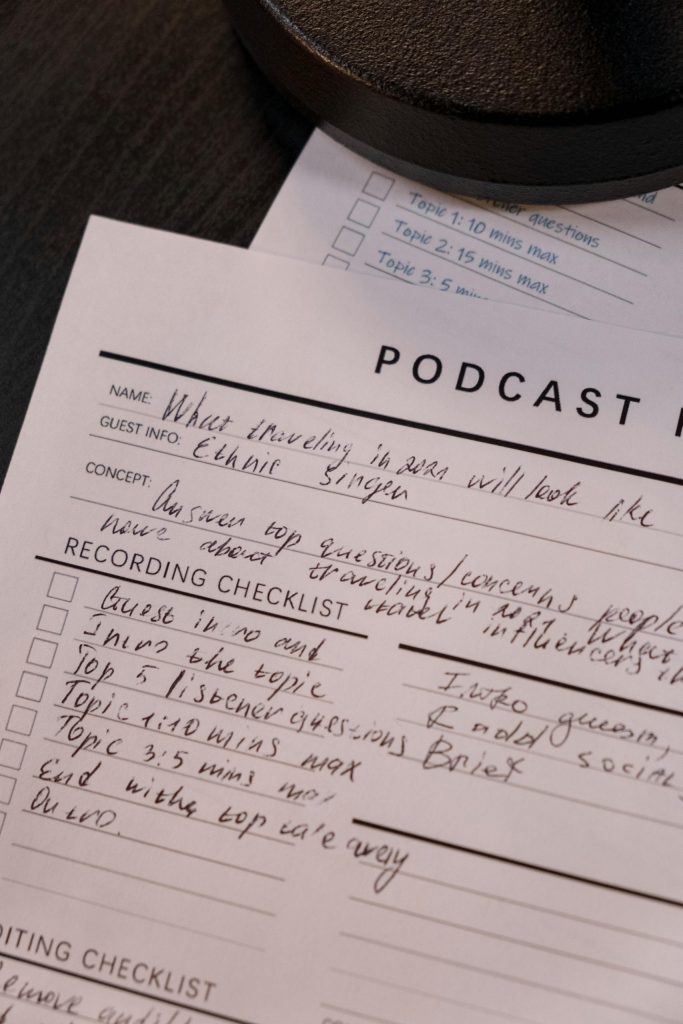 questions
Topic 1: 10 mins max
Topic 2: 15 mins max
Topic 3: 5
PODCAST
NAME: What traveling in 2021 will look like
GUEST INFO: Ethnie Singen
CONCEPT: Answer top questions/concerns people
have about traveling in 2021 What
travel influencers
RECORDING CHECKLIST
Guest intro and
Intro the topic
Top 5 listener questions
Topic 1:10 mins max
Topic 3:5 mins max
End witha top take away
Outro.
Intro
& add social
Brief
EDITING CHECKLIST
Remove